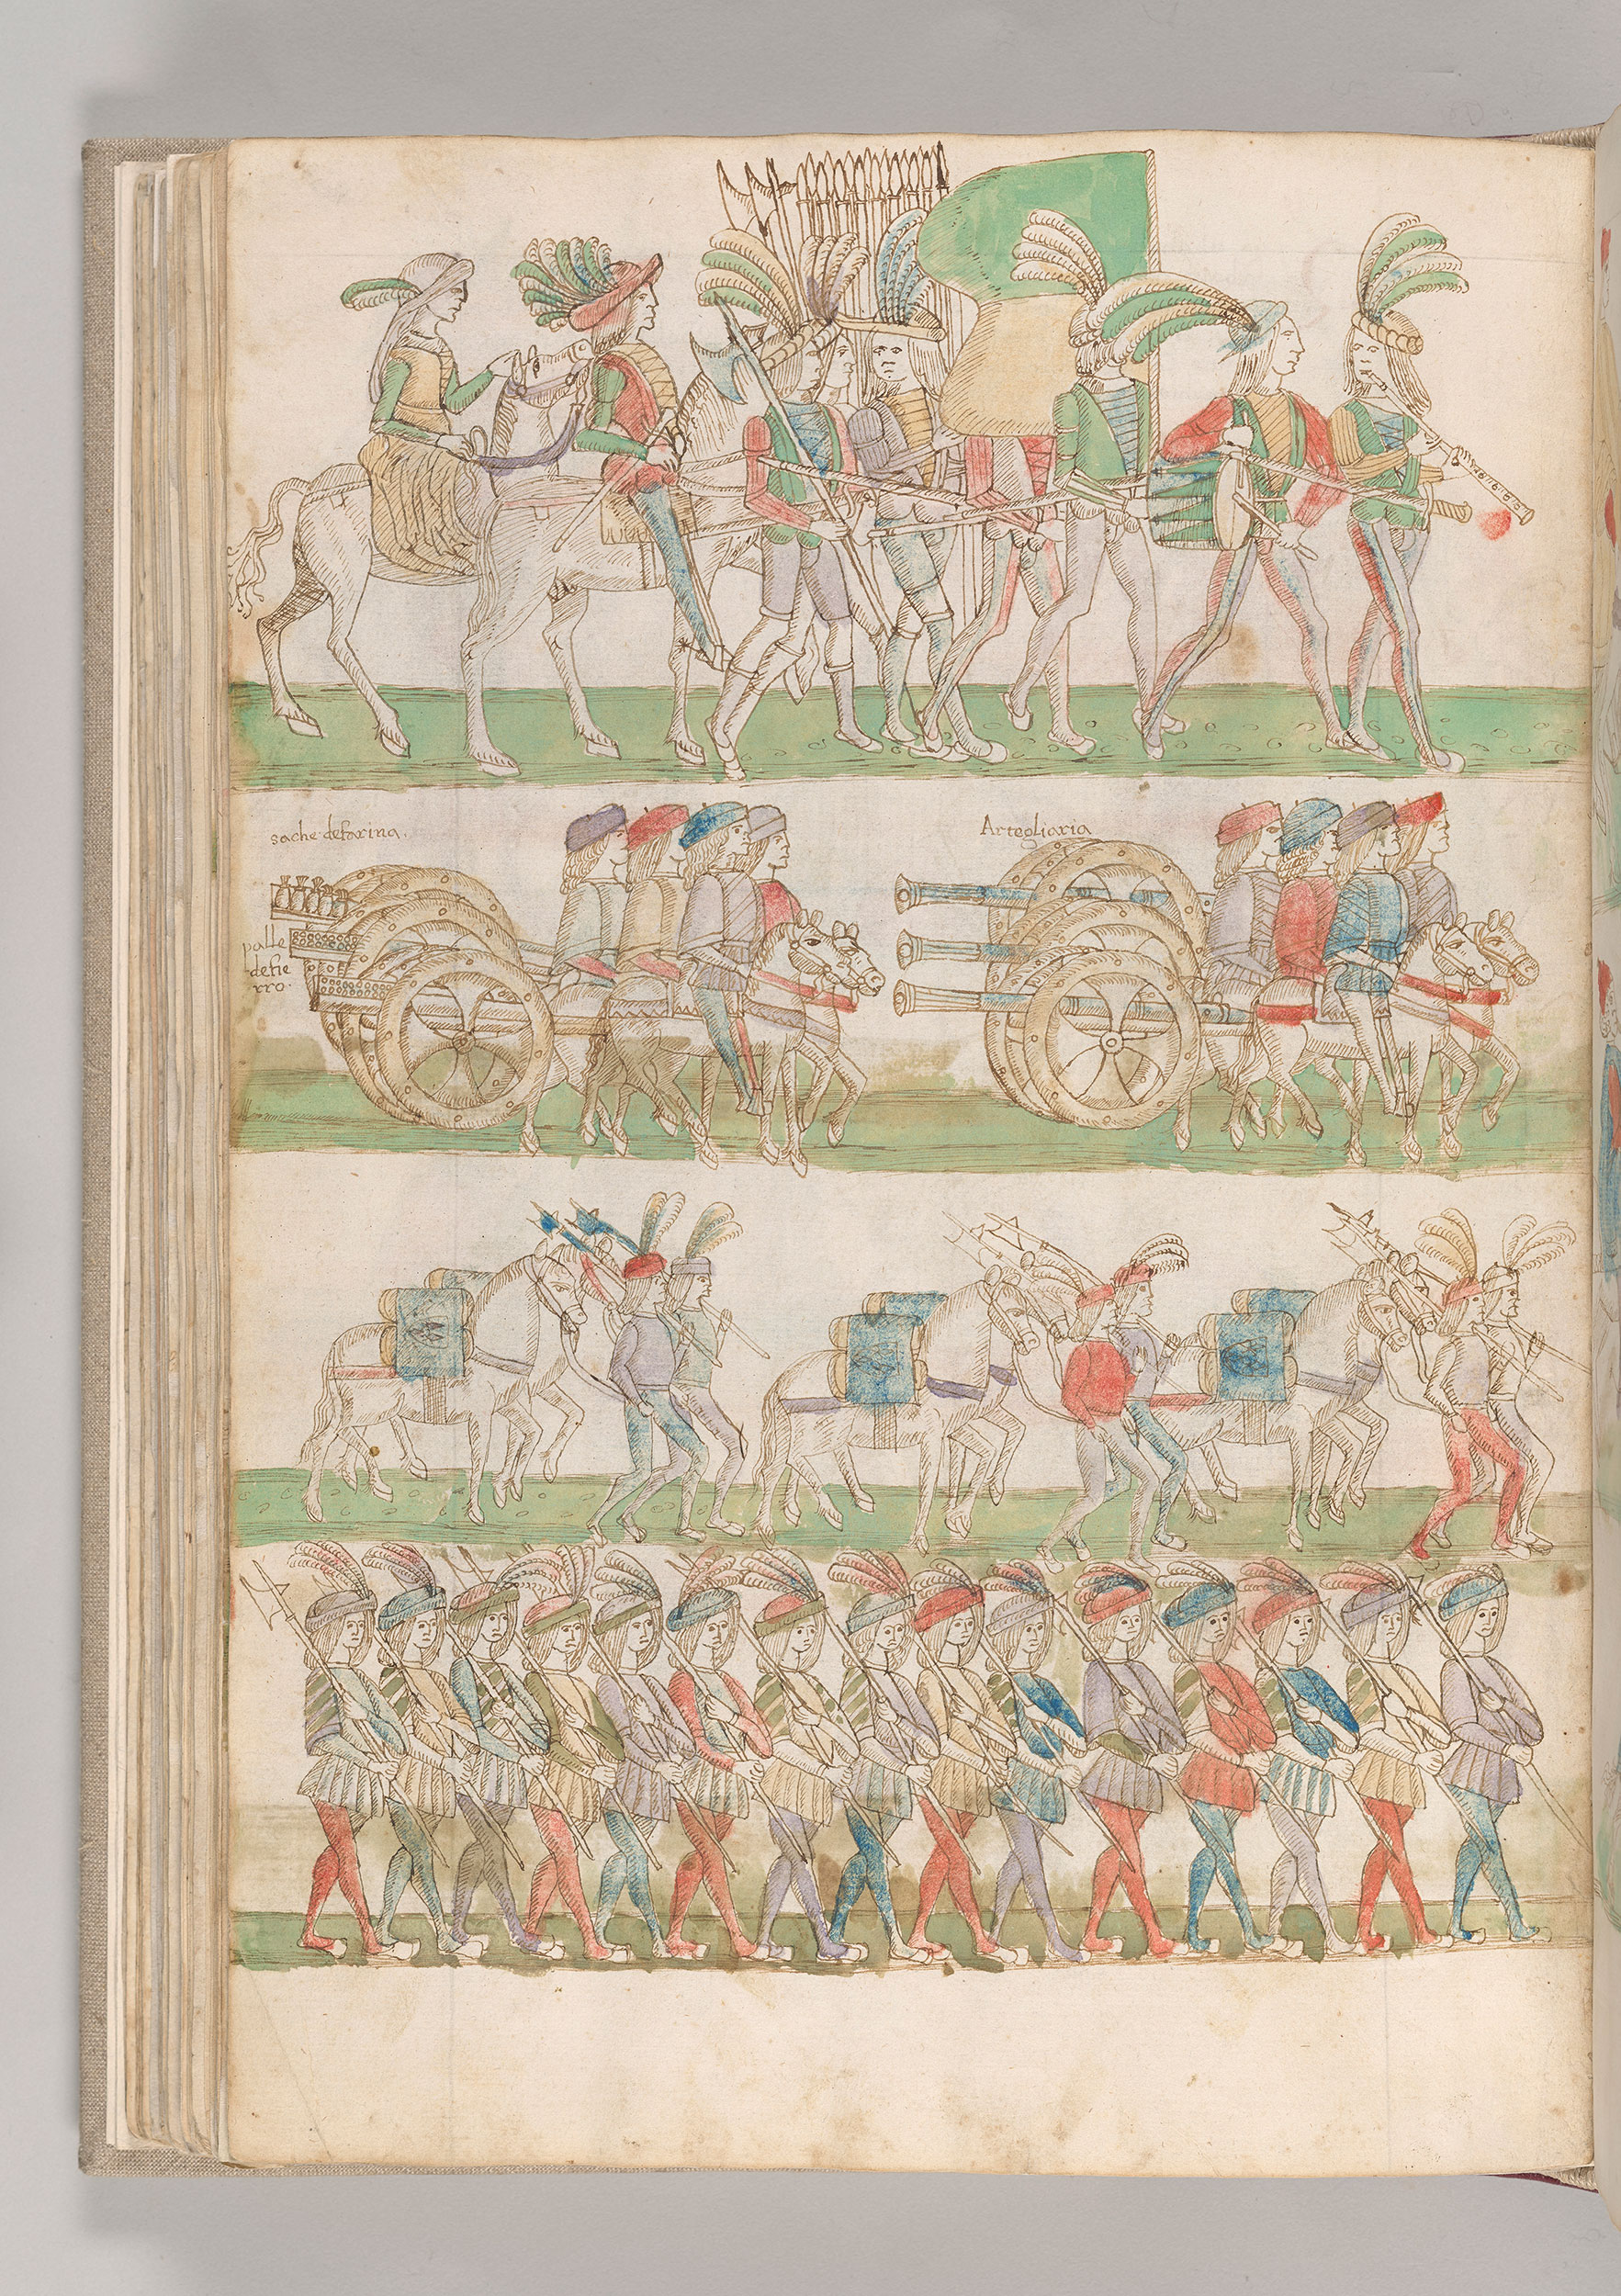 sache defarina.
palle
defie
rro.
Artegliaria